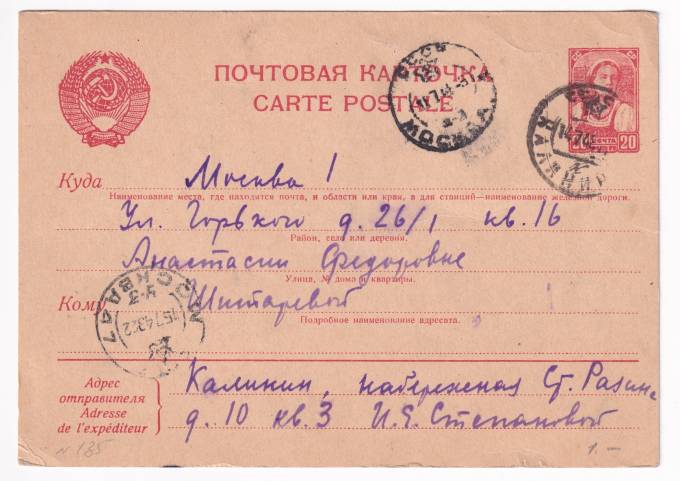 ПОЧТОВАЯ КАРТОЧКА
CARTE POSTALE
СССР
МОСКВА
ПОЧТА
20
КАЛИНИН
Куда Москва 1
Наименование места, где находится почта, и области или края, а для станций—наименование железной дороги.
Ул. Горького д. 26/1 кв. 16
Район, село или деревня.
Анастасии Федоровне
Улица, № дома и квартиры.
Кому Шитаревой
Подробное наименование адресата.
МОСКВА
Адрес отправителя
Adresse de l'expéditeur
Калинин, набережная Ст. Разина
д. 10 кв. 3 И. Я. Степановой
N 185
1. —